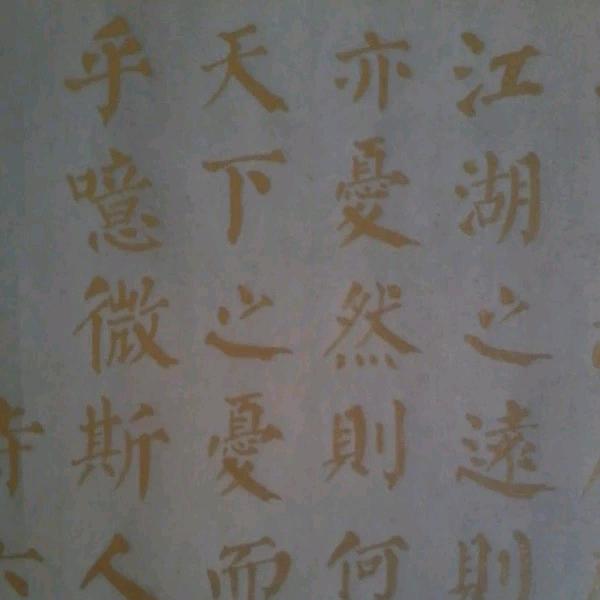 江湖之遠則
亦憂然則何
天下之憂而
乎噫微斯人